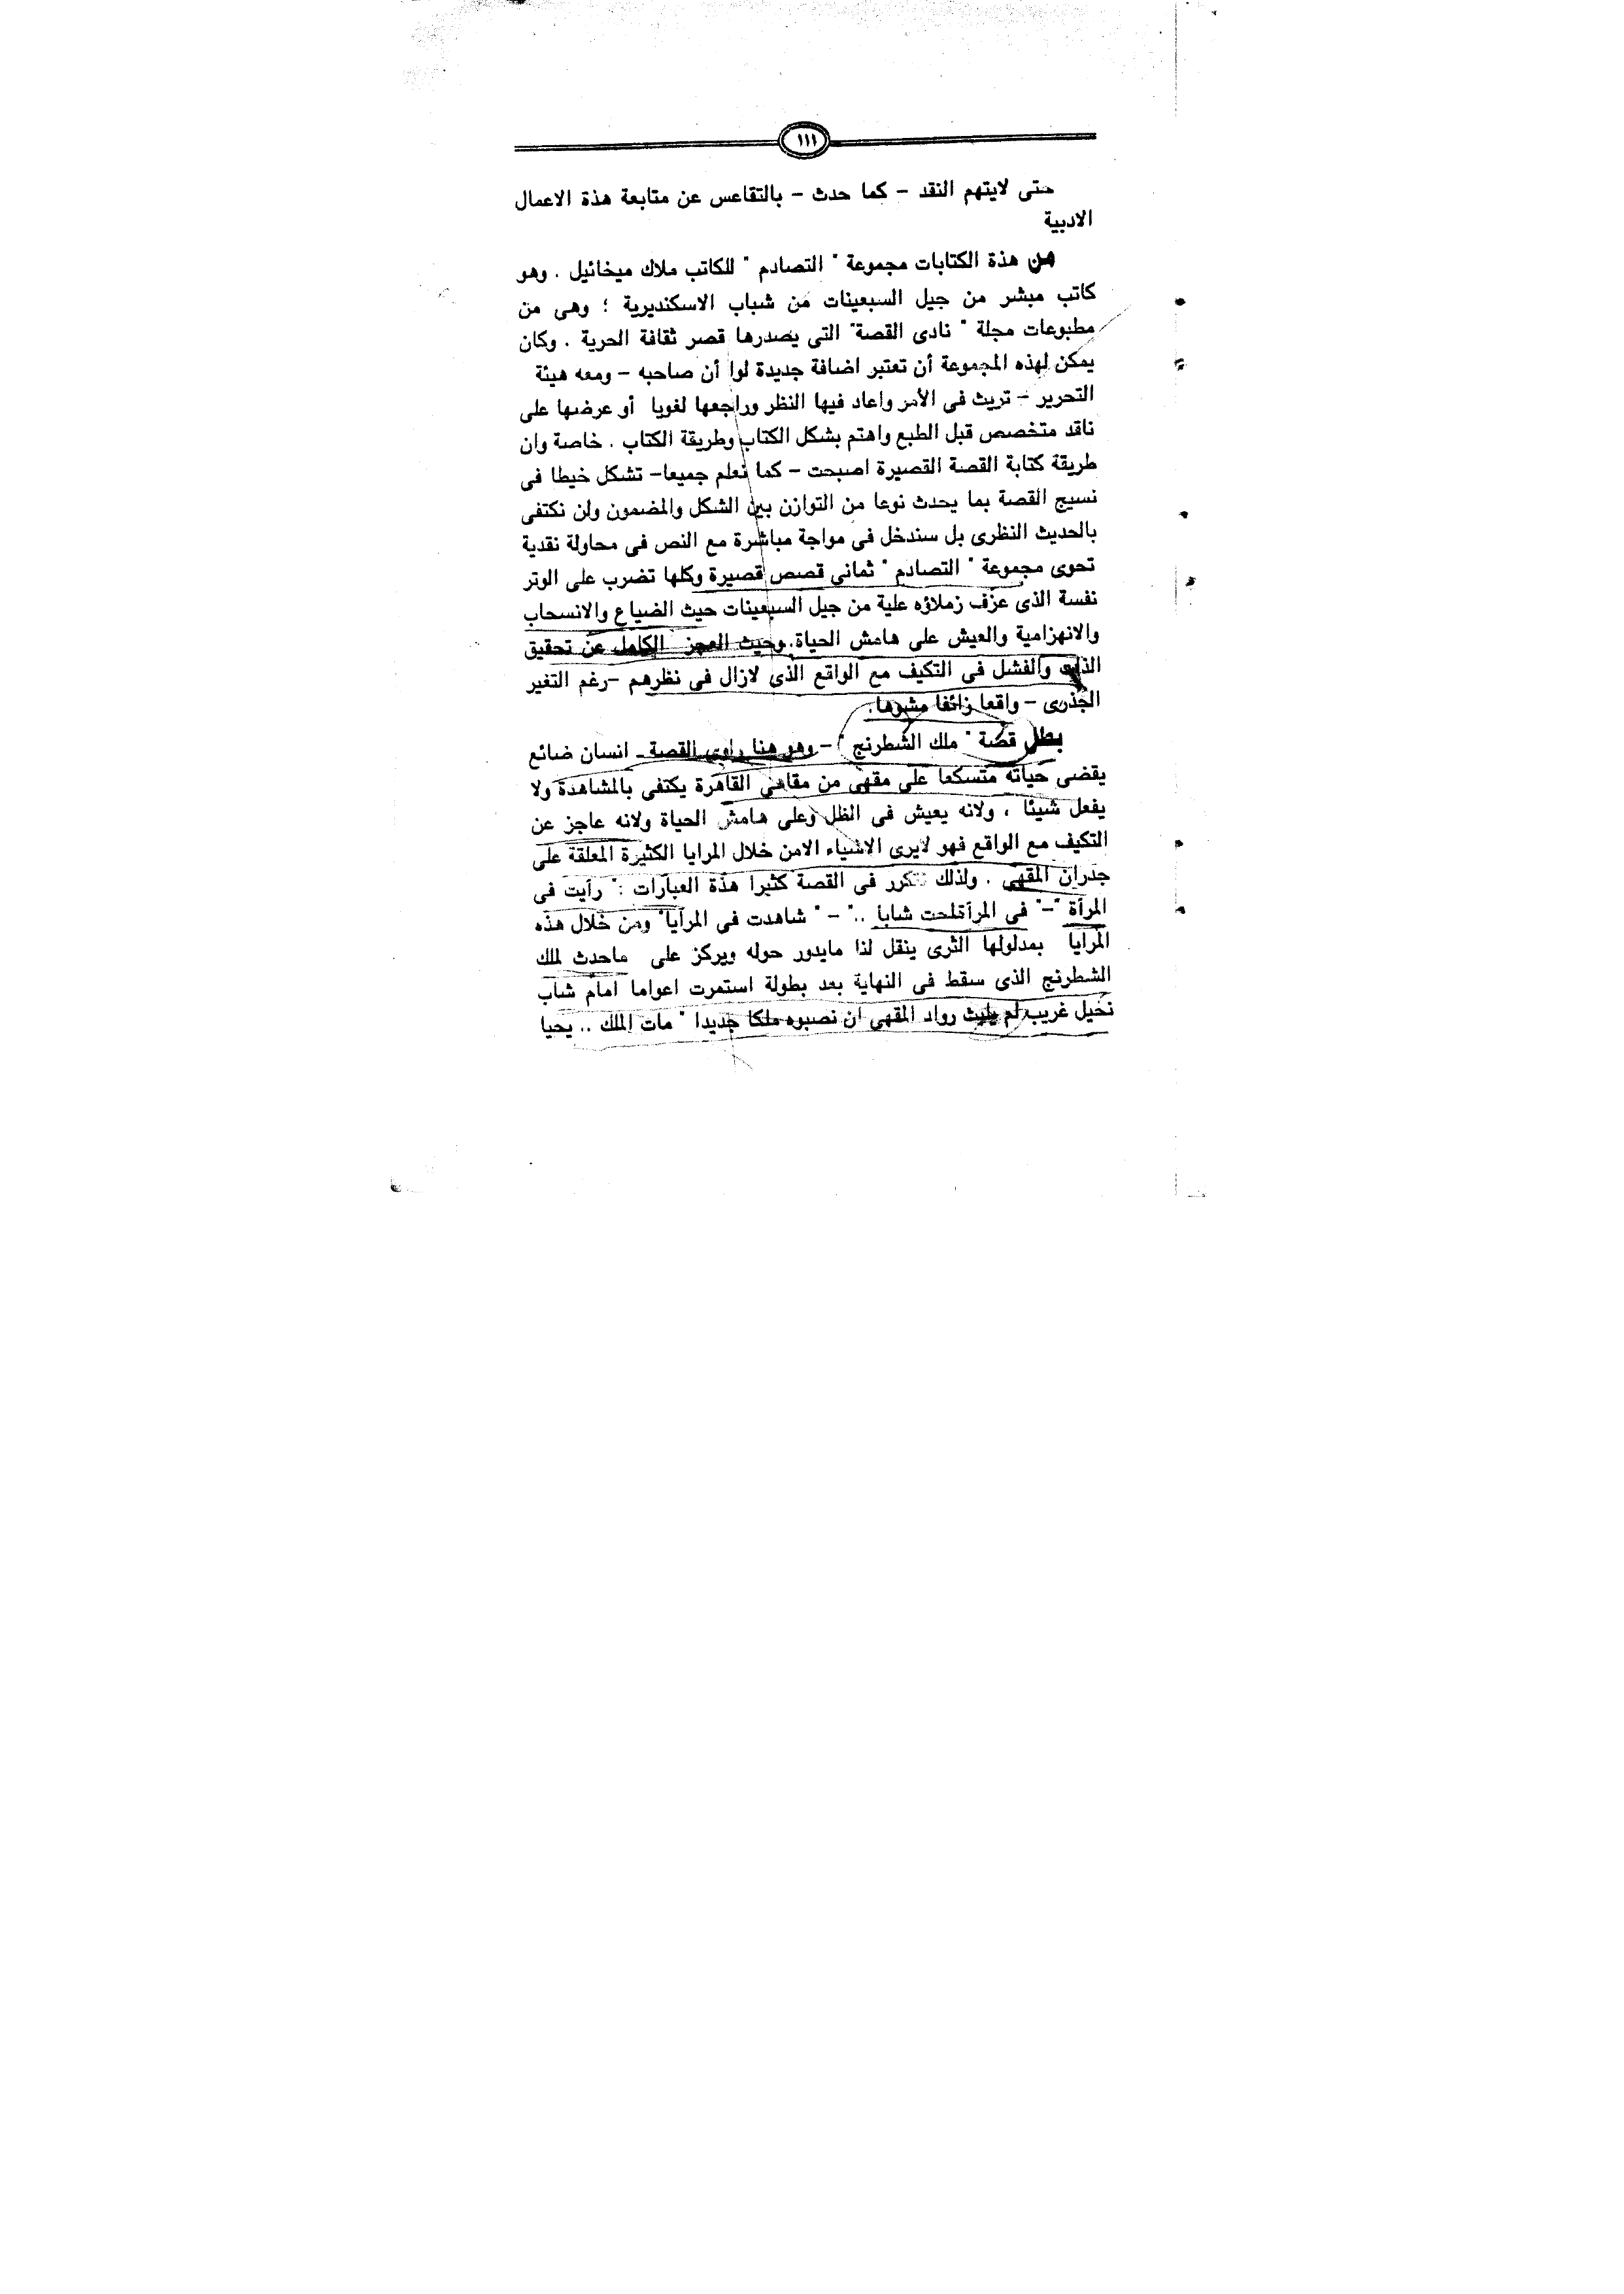 ١١١
حتى لايتهم النقد – كما حدث – بالتقاعس عن متابعة هذة الاعمال
الادبية
من هذة الكتابات مجموعة " التصادم " للكاتب ملاك ميخائيل . وهو
كاتب مبشر من جيل السبعينات من شباب الاسكنديرية ؛ وهى من
مطبوعات مجلة " نادى القصة" التى يصدرها قصر ثقافة الحرية . وكان
يمكن لهذه المجموعة أن تعتبر اضافة جديدة لوا أن صاحبه – ومعه هيئة
التحرير – تريث فى الأمر واعاد فيها النظر وراجعها لغويا أو عرضها على
ناقد متخصص قبل الطبع واهتم بشكل الكتاب وطريقة الكتاب . خاصة وان
طريقة كتابة القصة القصيرة اصبحت – كما نعلم جميعا– تشكل خيطا فى
نسيج القصة بما يحدث نوعا من التوازن بين الشكل والمضمون ولن نكتفى
بالحديث النظرى بل سندخل فى مواجة مباشرة مع النص فى محاولة نقدية
تحوى مجموعة " التصادم " ثماني قصص قصيرة وكلها تضرب على الوتر
نفسة الذى عزف زملاؤه علية من جيل السبعينات حيث الضياع والانسحاب
والانهزامية والعيش على هامش الحياة. وحيث العجز الكامل عن تحقيق
الذات والفشل فى التكيف مع الواقع الذى لازال فى نظرهم –رغم التغير
الجذرى – واقعا زائفا مشوها.
بطل قصة " ملك الشطرنج " – وهو هنا راوى القصة – انسان ضائع
يقضى حياته متسكعا على مقهى من مقاهى القاهرة يكتفى بالمشاهدة ولا
يفعل شيئا ، ولانه يعيش فى الظل وعلى هامش الحياة ولانه عاجز عن
التكيف مع الواقع فهو لايرى الاشياء الامن خلال المرايا الكثيرة المعلقة على
جدران المقهى . ولذلك تتكرر فى القصة كثيرا هذة العبارات : " رأيت فى
المرآة "–" فى المرآةلمحت شابا .." – " شاهدت فى المرآيا" ومن خلال هذه
المرايا بمدلولها الثرى ينقل لنا مايدور حوله ويركز على ماحدث لملك
الشطرنج الذى سقط فى النهاية بعد بطولة استمرت اعواما امام شاب
نحيل غريب لم يلبث رواد المقهى ان نصبوه ملكا جديدا " مات الملك .. يحيا